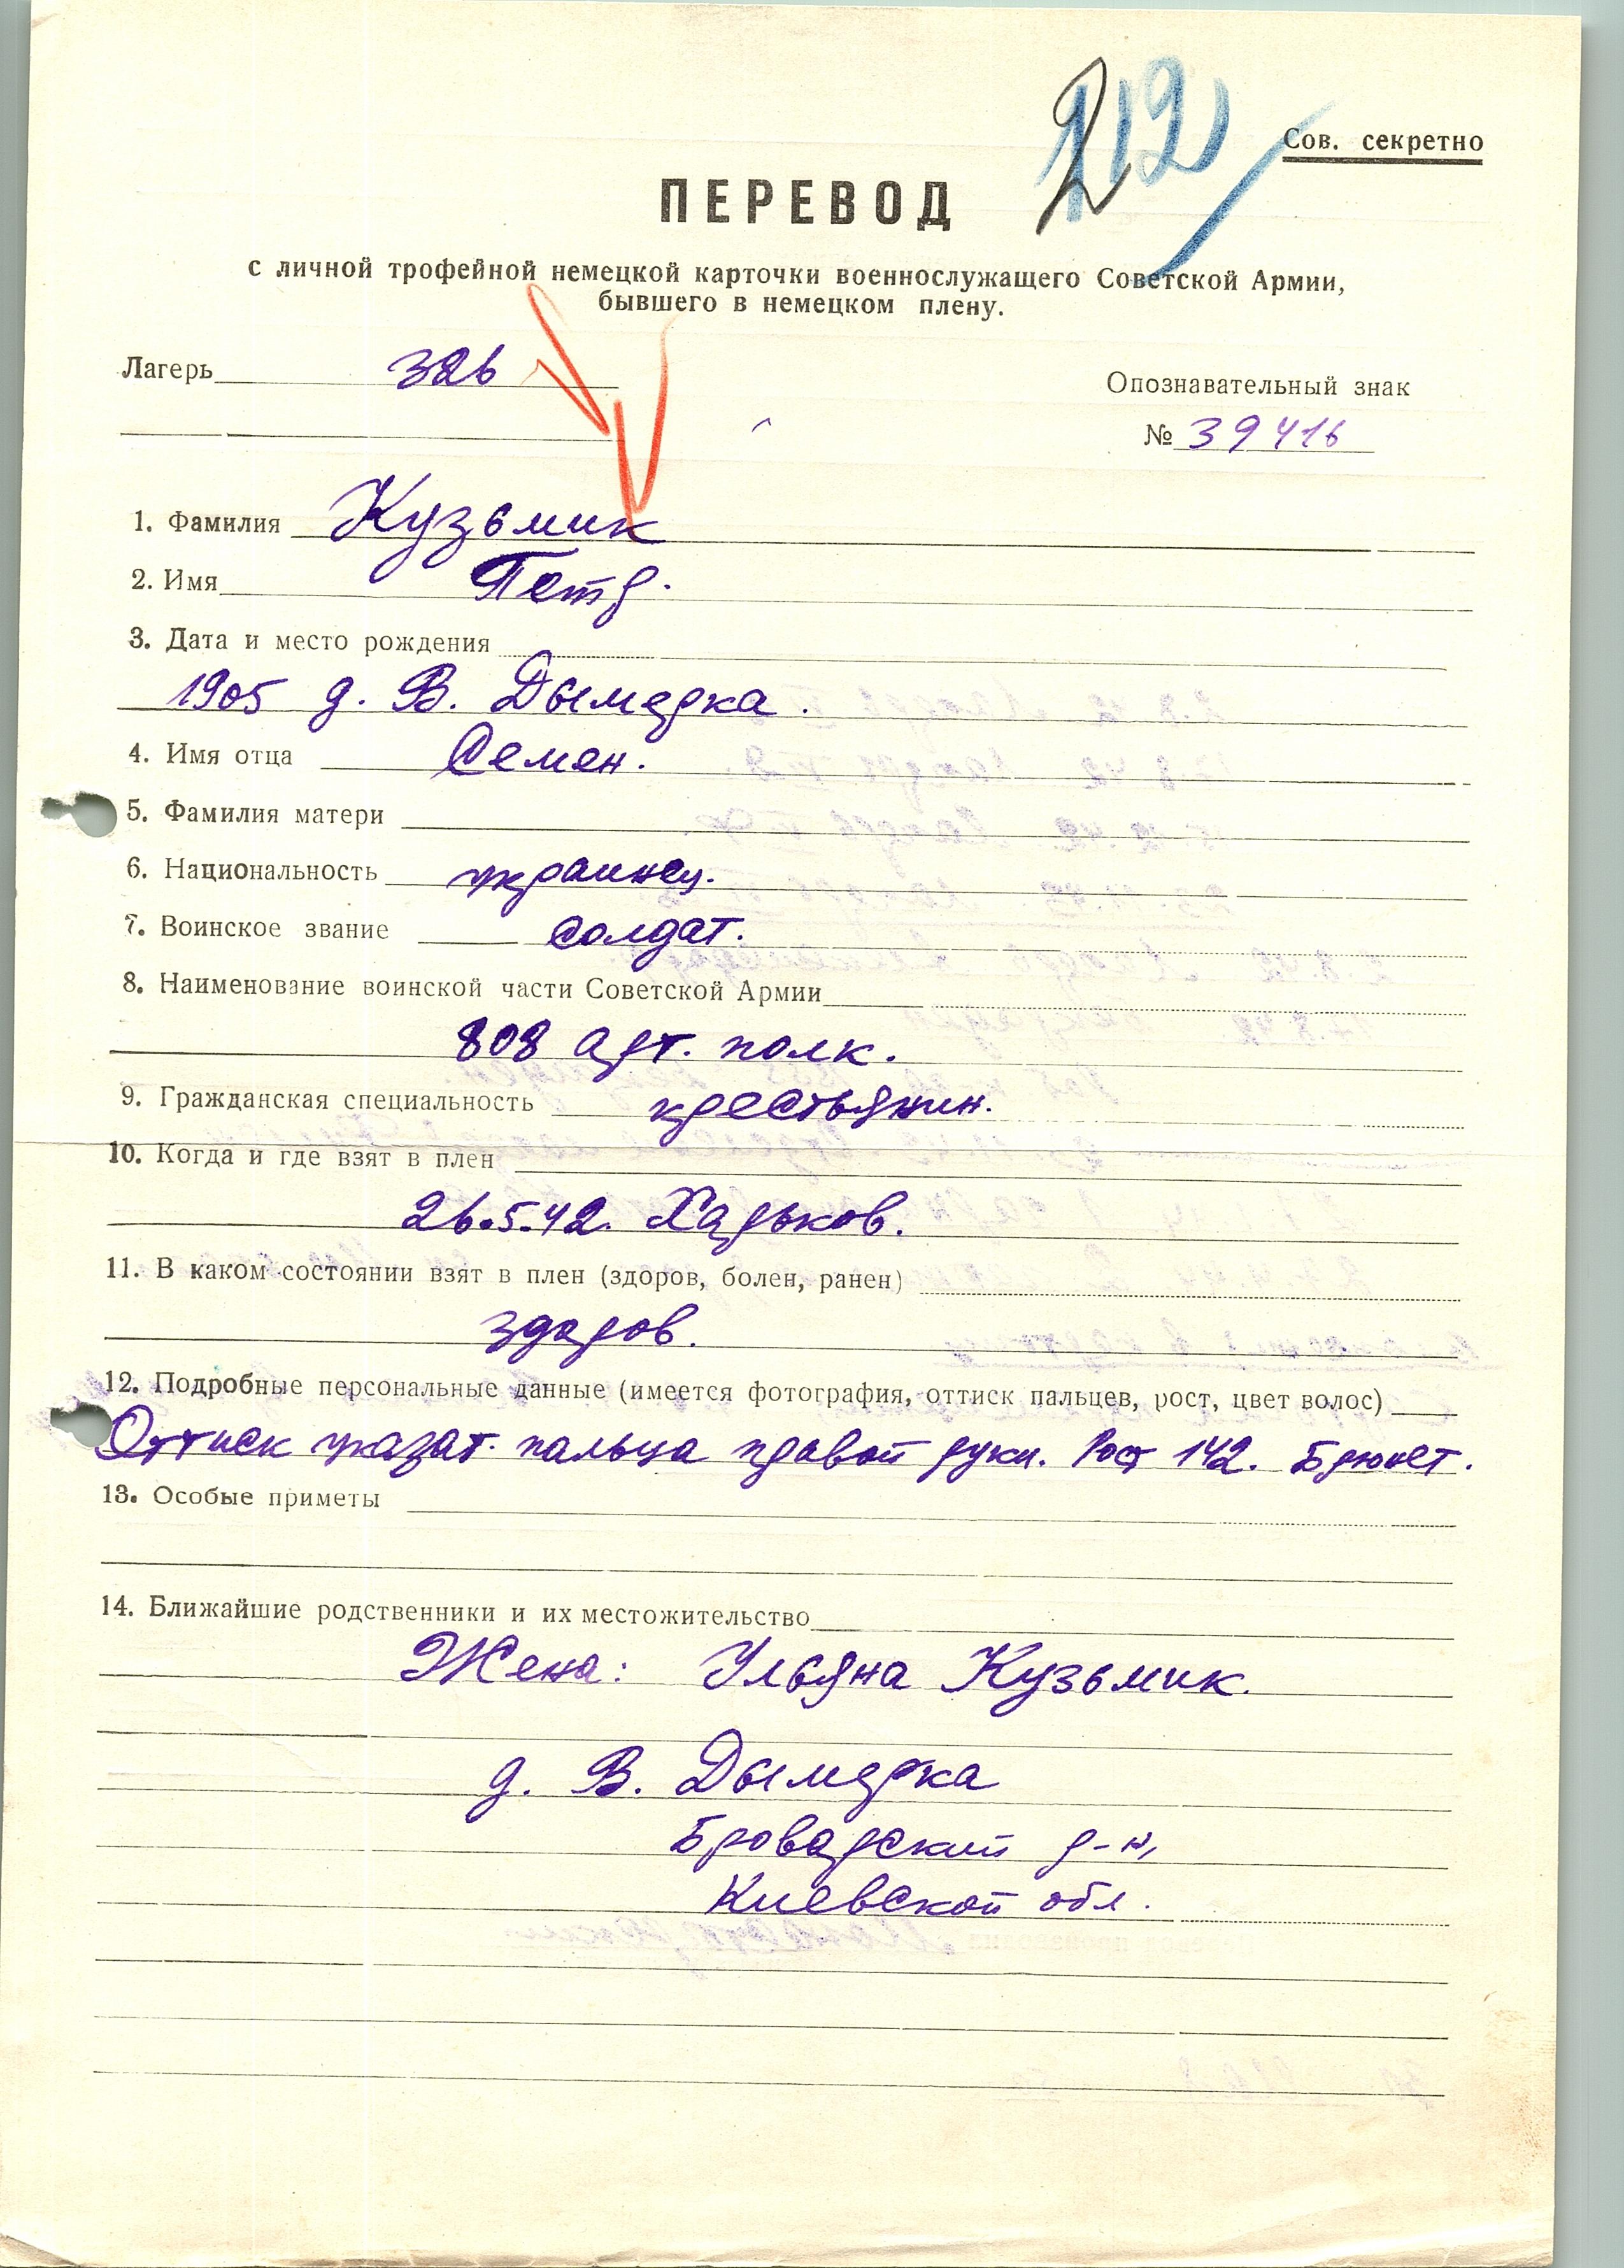 212
Сов. секретно
ПЕРЕВОД
с личной трофейной немецкой карточки военнослужащего Советской Армии,
бывшего в немецком плену.
Лагерь 326
Опознавательный знак
№ 39416
1. Фамилия Кузьмик
2. Имя Петр.
3. Дата и место рождения
1905 д. В. Дымерка.
4. Имя отца Семен.
5. Фамилия матери
6. Национальность украинец.
7. Воинское звание солдат.
8. Наименование воинской части Советской Армии
808 арт. полк.
9. Гражданская специальность крестьянин.
10. Когда и где взят в плен
26.5.42. Харьков.
11. В каком состоянии взят в плен (здоров, болен, ранен)
здоров.
12. Подробные персональные данные (имеется фотография, оттиск пальцев, рост, цвет волос)
Оттиск указат. пальца правой руки. Рост 142. Брюнет.
13. Особые приметы
14. Ближайшие родственники и их местожительство
Жена: Ульяна Кузьмик.
д. В. Дымерка
Броварский р-н,
Киевской обл.